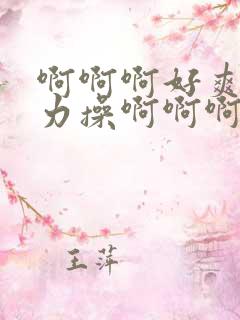 啊啊啊好爽
力操啊啊啊
王萍